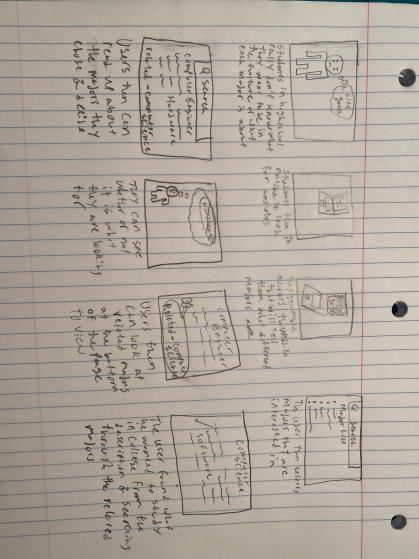 Life goals
Students in highschool
really don't know what
they want to be in
the future or what
each major is about
Students then go
online to look
for answers
them what different
majors are
Q search
Major List
The user then selects
majors that are
interested in
Q search
Computer Engineer
Hardware
related - computer
science
Users then can
read up about
the majors they
chose &
They can see
whether or not
it is what
they are looking
for
Computer
Engineer
related - computer
science
Users then
can look at
related majors
at the bottom
of the page
to view
Computer
science
software
The user found what
he wanted to study
in college from the
description & searching
through the related
majors